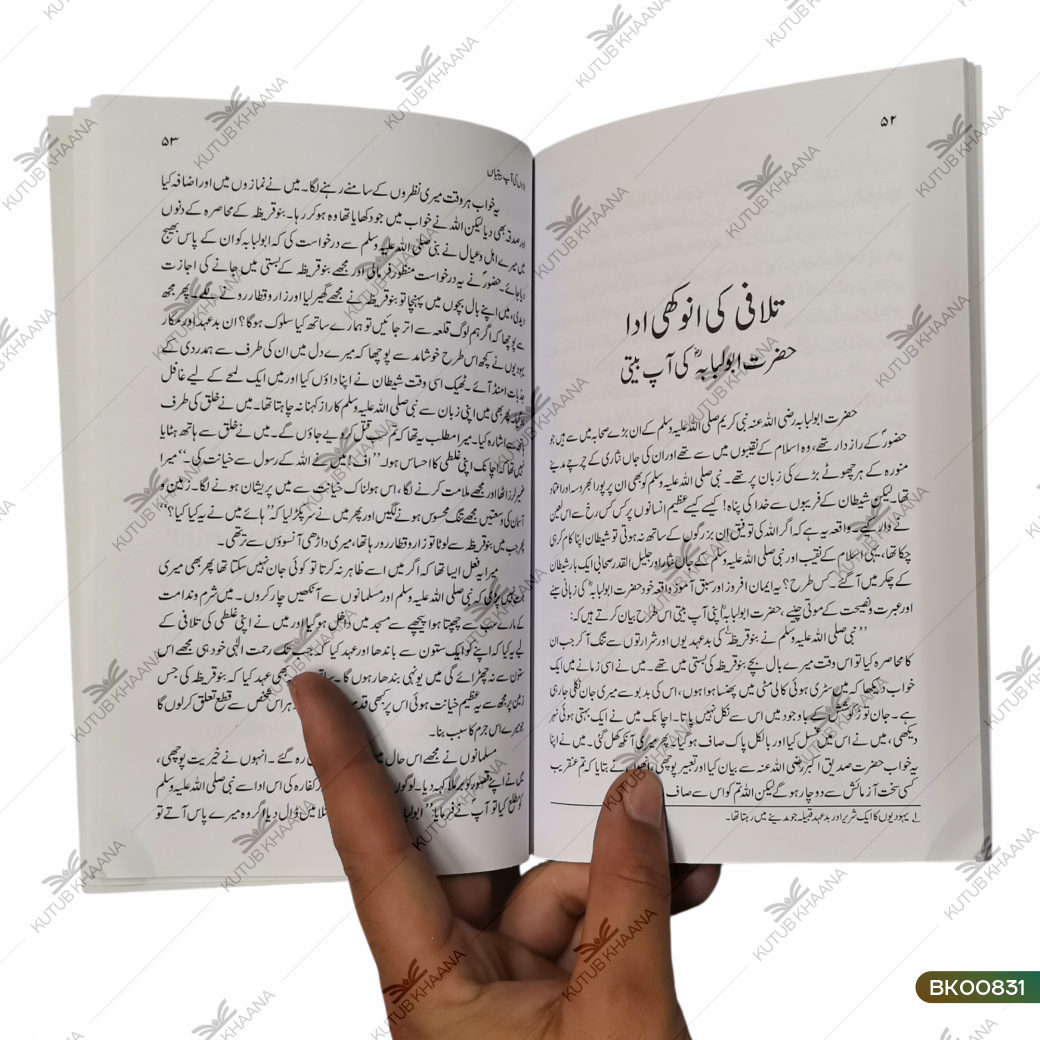 ۵۲
تلافی کی انوکھی ادا
حضرت ابولبابہؓ کی آپ بیتی
حضرت ابولبابہ رضی اللہ عنہ نبی کریم صلی اللہ علیہ وسلم کے ان بڑے صحابہ میں سے ہیں جو
حضورؐ کے رازدار تھے، وہ اسلام کے نقیبوں میں سے تھے اور ان کی جاں نثاری کے چرچے مدینے
منورہ کے ہر چھوٹے بڑے کی زبان پر تھے۔ نبی صلی اللہ علیہ وسلم کو بھی ان پر پورا بھروسہ اور اعتماد
تھا۔ لیکن شیطان کے فریبوں سے خدا کی پناہ! کیسے کیسے عظیم انسانوں پر کس کس رخ سے اس لعین
نے وار کیے۔ واقعہ یہ ہے کہ اگر اللہ کی توفیق ان بزرگوں کے ساتھ نہ ہوتی تو شیطان اپنا کام کر ہی
چکا تھا، یہی اسلام کے نقیب اور نبی صلی اللہ علیہ وسلم کے جاں نثار اور جلیل القدر صحابی ایک بار شیطان
کے چکر میں آ گئے۔ کس طرح؟ یہ ایمان افروز اور سبق آموز واقعہ خود حضرت ابولبابہؓ کی زبانی سنیے
اور عبرت و نصیحت کے موتی چنیے، حضرت ابولبابہؓ اپنی آپ بیتی اس طرح بیان کرتے ہیں کہ:
”نبی صلی اللہ علیہ وسلم نے بنو قریظہ۱ کی بدعہدیوں اور شرارتوں سے تنگ آ کر جب ان
کا محاصرہ کیا تو اس وقت میرے بال بچے بنو قریظہ کی بستی میں تھے۔ میں نے اسی زمانے میں ایک
خواب دیکھا کہ میں سڑی ہوئی کالی مٹی میں پھنسا ہوا ہوں، اس کی بدبو سے میری جان نکلی جا رہی
ہے۔ جان توڑ کوشش کے باوجود میں اس سے نکل نہیں پاتا۔ اچانک میں نے ایک بہتی ہوئی نہر
دیکھی، میں نے اس میں غسل کیا اور بالکل پاک صاف ہو گیا۔ پھر میری آنکھ کھل گئی۔ میں نے اپنا
یہ خواب حضرت صدیق اکبر رضی اللہ عنہ سے بیان کیا اور تعبیر پوچھی نے بتایا کہ تم عنقریب
کسی سخت آزمائش سے دوچار ہو گے لیکن اللہ تم کو اس سے صاف
۱ یہودیوں کا ایک شریر اور بدعہد قبیلہ جو مدینے میں رہتا تھا۔
۵۳
کی آپ بیتیاں
یہ خواب ہر وقت میری نظروں کے سامنے رہنے لگا۔ میں نے نمازوں میں اور اضافہ کیا
اور صدقہ بھی دیا لیکن اللہ نے خواب میں جو دکھایا تھا وہ ہو کر رہا۔ بنو قریظہ کے محاصرہ کے دنوں
میں میرے اہل و عیال نے نبی صلی اللہ علیہ وسلم سے درخواست کی کہ ابولبابہ کو ان کے پاس بھیج
دیا جائے۔ حضورؐ نے یہ درخواست منظور فرمائی اور مجھے بنو قریظہ کے بستی میں جانے کی اجازت
دیدی، میں اپنے بال بچوں میں پہنچا تو بنو قریظہ نے مجھے گھیر لیا اور زار و قطار رونے لگے۔ پھر مجھ
سے پوچھا کہ اگر ہم لوگ قلعہ سے اتر جائیں تو ہمارے ساتھ کیا سلوک ہوگا؟ ان بدعہد اور مکار
یہودیوں نے کچھ اس طرح خوشامد سے پوچھا کہ میرے دل میں ان کی طرف سے ہمدردی کے
جذبات امنڈ آئے۔ ٹھیک اسی وقت شیطان نے اپنا داؤں کیا اور میں ایک لمحے کے لیے غافل
پھر بھی میں اپنی زبان سے نبی صلی اللہ علیہ وسلم کا راز کہنا نہ چاہتا تھا۔ میں نے حلق کی طرف
سے اشارہ کیا۔ میرا مطلب یہ تھا کہ تم سب قتل کر دیے جاؤں گے۔ میں نے حلق سے ہاتھ ہٹایا
نہیں تھا کہ اچانک اپنی غلطی کا احساس ہوا۔ ”اف! میں نے اللہ کے رسول سے خیانت کی۔“ میرا
ضمیر لرز اٹھا اور مجھے ملامت کرنے لگا، اس ہولناک خیانت سے میں پریشان ہونے لگا۔ زمین و
آسمان کی وسعتیں مجھے تنگ محسوس ہونے لگیں اور پھر میں نے سر پکڑ لیا کہ ”ہائے میں نے یہ کیا کیا؟“
پھر جب میں بنو قریظہ سے لوٹا تو زار و قطار رو رہا تھا، میری داڑھی آنسوؤں سے تر تھی۔
میرا یہ فعل ایسا تھا کہ اگر میں اسے ظاہر نہ کرتا تو کوئی جان نہیں سکتا تھا پھر بھی میری
نہیں پڑی کہ نبی صلی اللہ علیہ وسلم اور مسلمانوں سے آنکھیں چار کروں۔ میں شرم و ندامت
کے مارے سب سے چھپتا ہوا پیچھے سے مسجد میں داخل ہو گیا اور میں نے اپنی غلطی کی تلافی کے
لیے یہ کیا کہ اپنے کو ایک ستون سے باندھا اور عہد کیا کہ جب تک رحمت الٰہی خود ہی مجھے اس
ستون سے نہ چھڑائے گی میں یونہی بندھا رہوں گا۔ بھی عہد کیا کہ بنو قریظہ کی جس
زمین پر مجھ سے یہ عظیم خیانت ہوئی اس پر بھی قدم ہر اس شخص سے قطع تعلق کر لوں گا
جو میرے اس جرم کا سبب بنا۔
مسلمانوں نے مجھے اس حال میں رہ گئے۔ انہوں نے خیریت پوچھی،
میں نے اپنے قصور کو برملا کہہ دیا۔ لوگوں کفارہ کی اس ادا سے نبی صلی اللہ علیہ وسلم
کو مطلع کیا تو آپ نے فرمایا: ”ابولبابہ میں ڈال دیا اگر وہ میرے پاس آتے تو
KUTUB KHAANA
BK00831